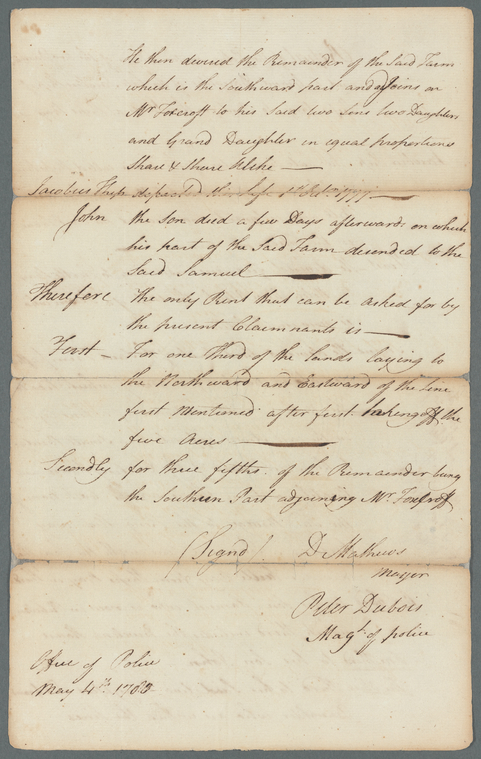 He then devised the Remainder of the Said Farm
which is the Southward part and adjoins on
Mr Foxcroft to his Said two Sons two Daughters
and Grand Daughter in equal proportions
Share & Share Alike —
Jacobus departed this life 1st Octr 1777 —
John the Son died a few Days afterwards on which
his part of the Said Farm desended to the
Said Samuel —
Therefore the only Rent that can be asked for by
the present Claimnants is —
First — For one Third of the lands laying to
the Northward and Eastward of the Line
first Mentioned after first taking off the
five Acres —
Secondly for three fifths of the Remainder being
the Southern Part adjoining Mr Foxcroft
(Signd) D Mathews
Mayor
Peter Dubois
Magt of police
Office of Police
May 4th